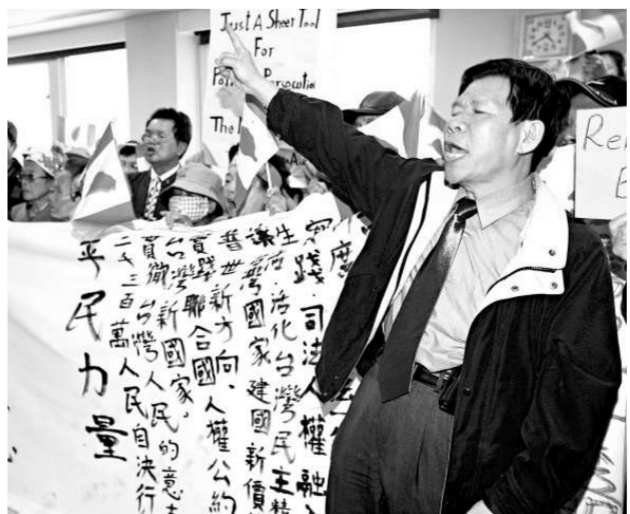 Just A Sheer Tool
For
Persecution
The
Re
E
實踐．司法人權融入
活化台灣民主
讓灣國家建國新價
普世新方向、人權公約
實踐聯合國
台灣新國家。
貫徹台灣人民的意
二千三百萬人民自決行
平民力量